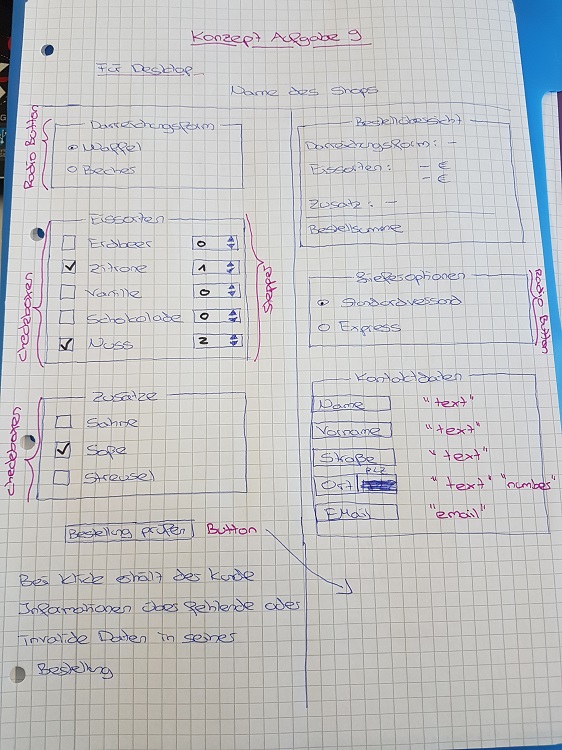 Konzept Aufgabe 9
Für Desktop
Name des Shops
Radio Button
Darreichungsform
Waffel
Becher
Eissorten
Checkboxen
Stepper
Erdbeer 0
Zitrone 1
Vanille 0
Schokolade 0
Nuss 2
Zusätze
Checkboxen
Sahne
Soße
Streusel
Bestellung prüfen Button
Bei Klick erhält der Kunde
Informationen über fehlende oder
invalide Daten in seiner
Bestellung
Bestellübersicht
Darreichungsform: -
Eissorten: - €
- €
Zusatz: -
Bestellsumme
Lieferoptionen
Radio Button
Standardversand
Express
Kontaktdaten
Name "text"
Vorname "text"
Straße "text"
Ort PLZ "text" "number"
EMail "email"